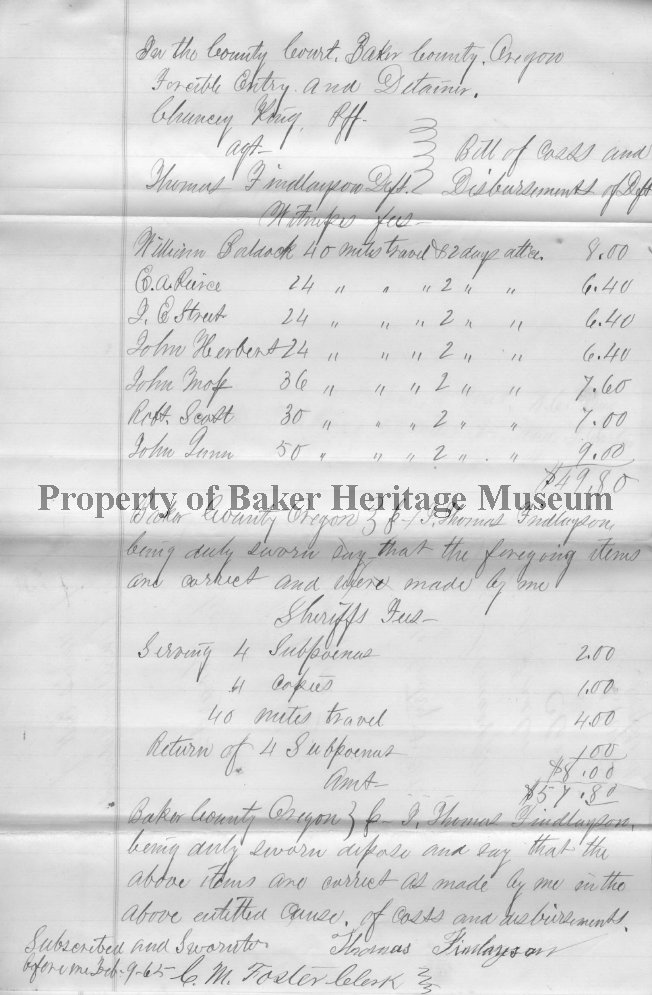 In the County Court, Baker County, Oregon
Forcible Entry and Detainer.
Chancey King, Pff.
agt
Bill of Costs and
Thomas Findlayson Deft. Disbursements of Deft
Witness fees
William Baldock 40 miles travel & 2 days atten. 8.00
E. A. Pierce 24 " " " 2 " " 6.40
J. E. Street 24 " " " 2 " " 6.40
John Herbert 24 " " " 2 " " 6.40
John 36 " " " 2 " " 7.60
Robt. Scott 30 " " " 2 " " 7.00
John 50 " " " 2 " " 9.00
$49.80
Property of Baker Heritage Museum
Baker County Oregon } ss I, Thomas Findlayson,
being duly sworn say that the foregoing items
are correct and were made by me
Sheriffs Fees
Serving 4 Subpoenas 2.00
4 copies 1.00
40 miles travel 4.00
Return of 4 Subpoenas 1.00
$8.00
Amt $57.80
Baker County Oregon } ss I, Thomas Findlayson,
being duly sworn depose and say that the
above items are correct as made by me in the
above entitled cause, of costs and disbursements.
Subscribed and Sworn to Thomas Finlayson
before me Feb. 9-65 C. M. Foster Clerk